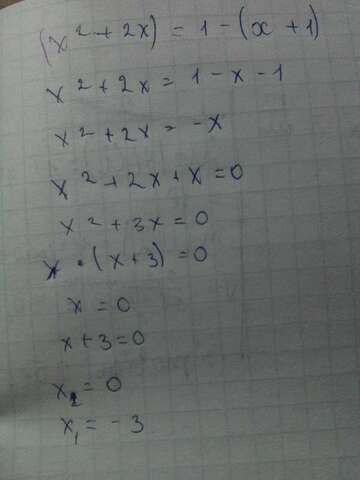 (x² + 2x) = 1 - (x + 1)
x² + 2x = 1 - x - 1
x² + 2x = -x
x² + 2x + x = 0
x² + 3x = 0
x · (x + 3) = 0
x = 0
x + 3 = 0
x₂ = 0
x₁ = - 3